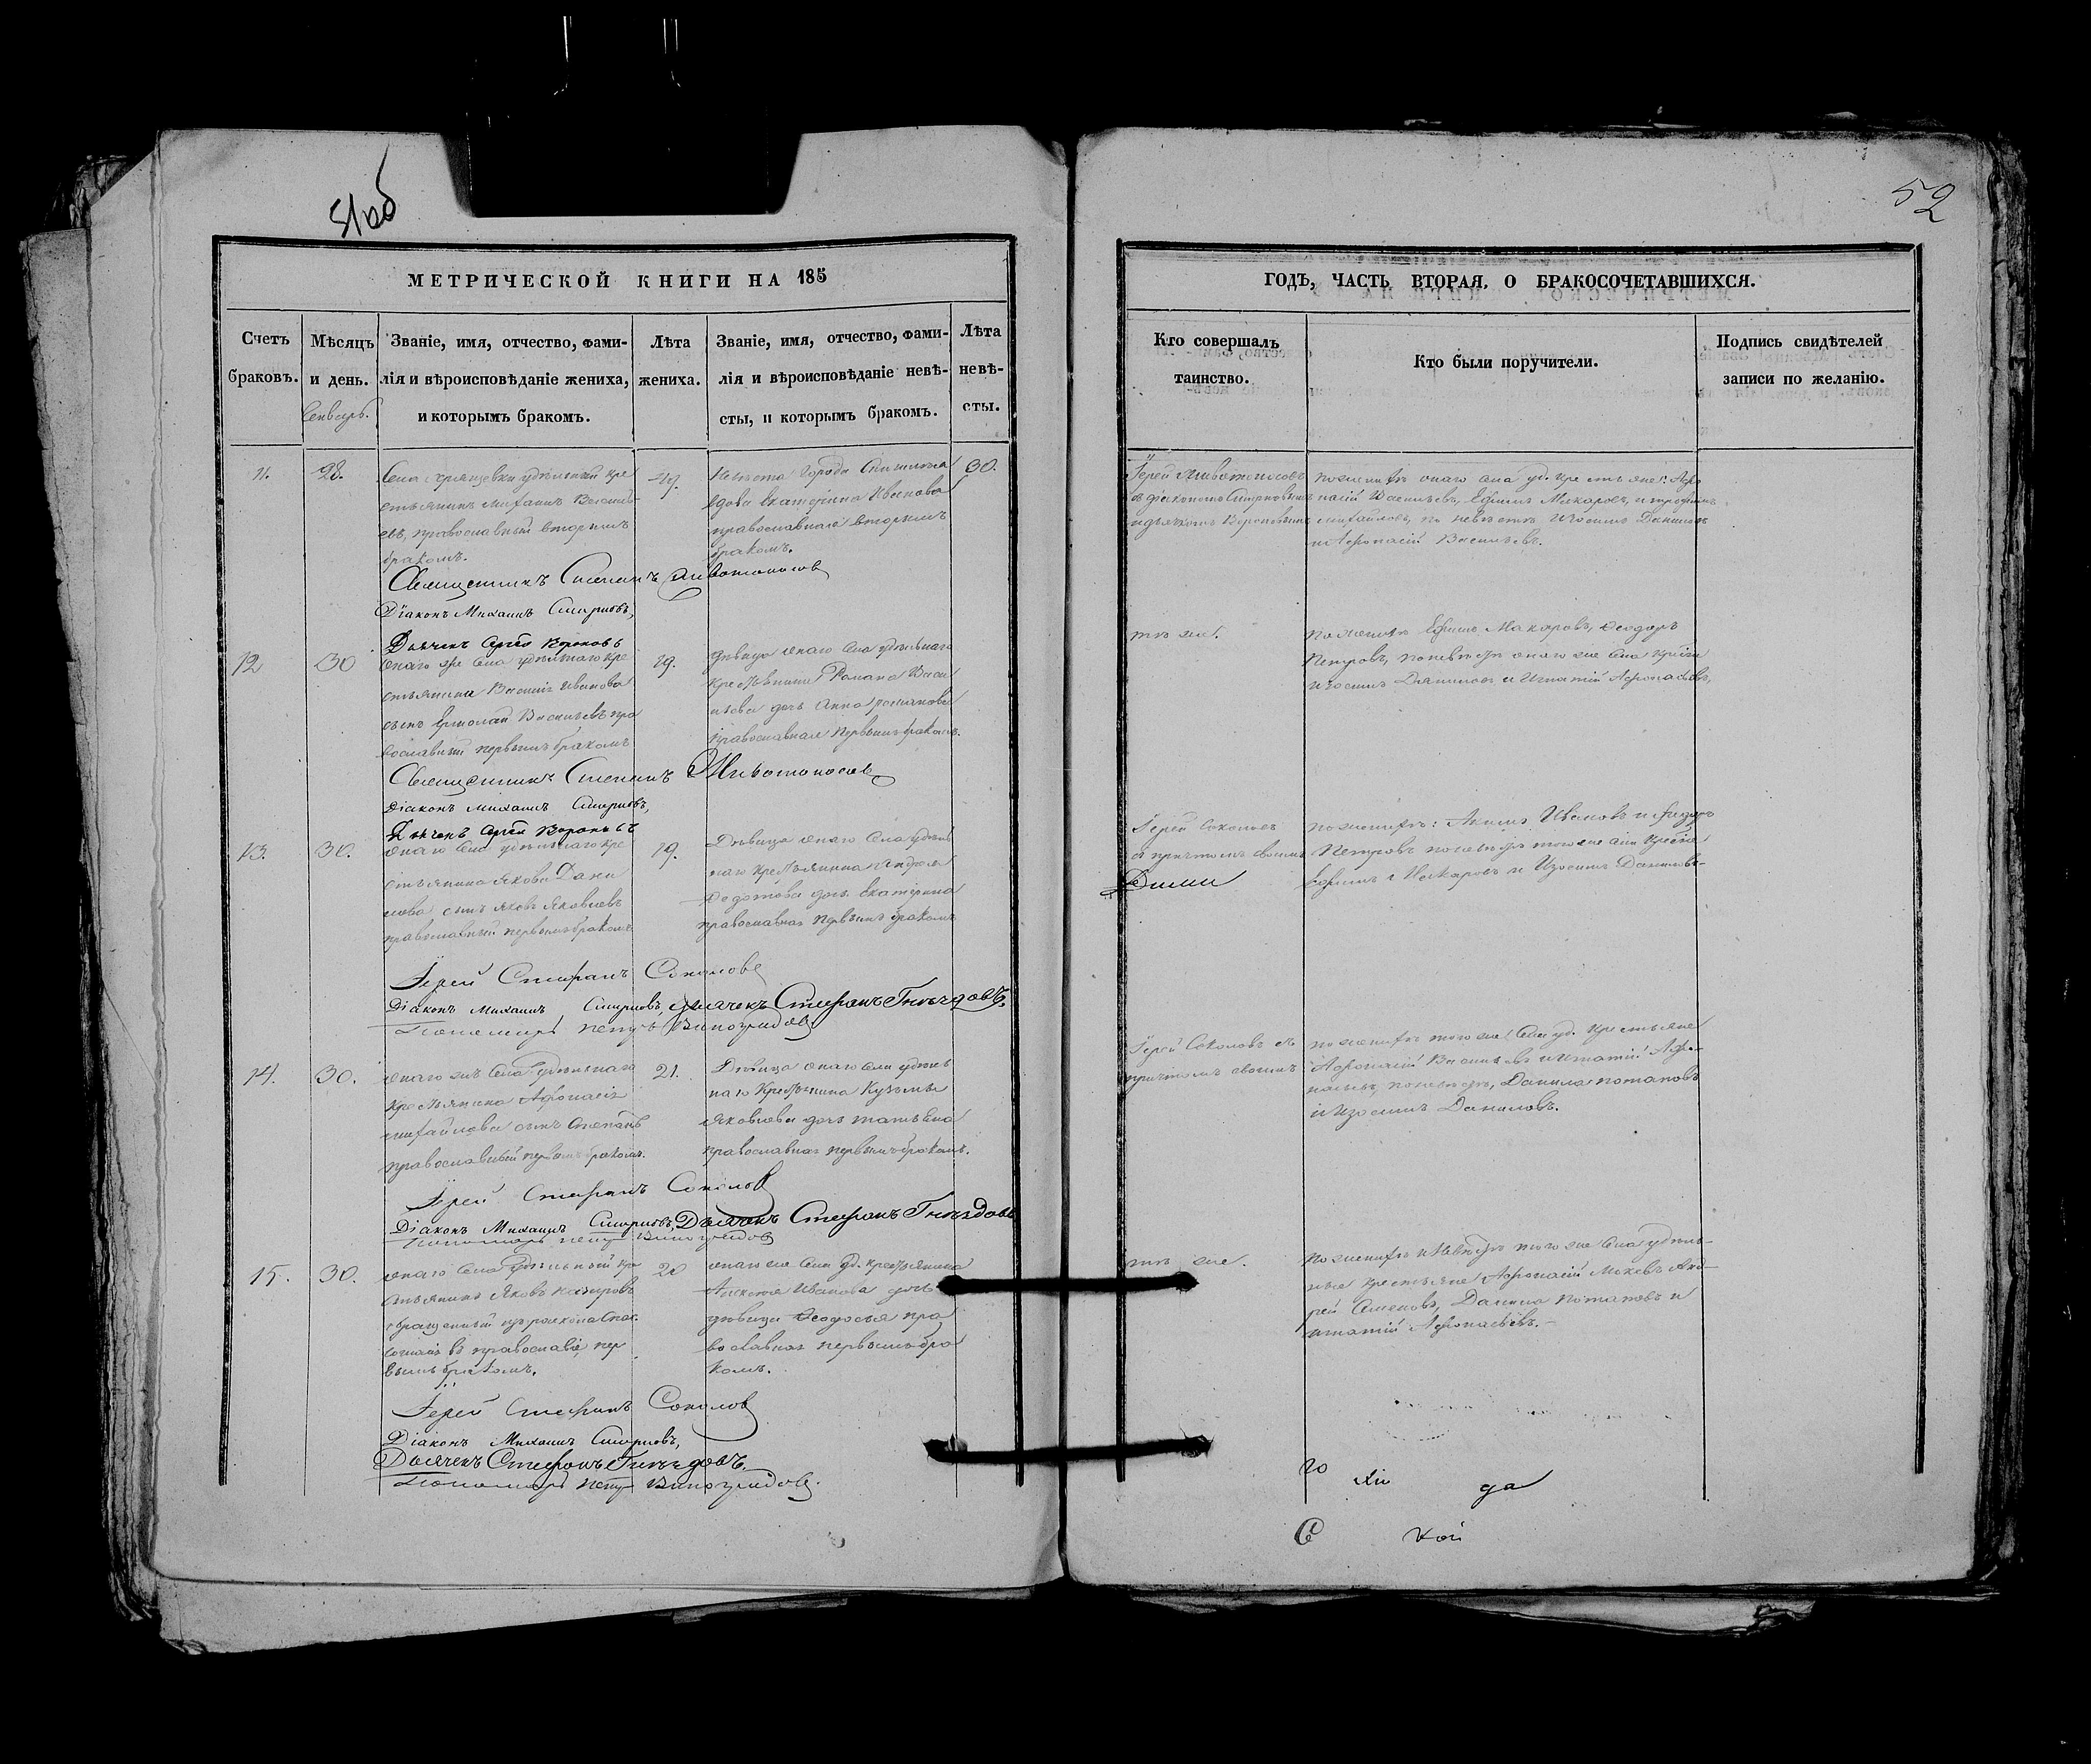 51об
МЕТРИЧЕСКОЙ КНИГИ НА 185
Счетъ браковъ.
Мѣсяцъ и день.
Генварь.
Званіе, имя, отчество, фами-
лія и вѣроисповѣданіе жениха,
и которымъ бракомъ.
Лѣта
жениха.
Званіе, имя, отчество, фами-
лія и вѣроисповѣданіе невѣ-
сты, и которымъ бракомъ.
Лѣта
невѣ-
сты.
11.
28.
Села удѣльный кре
стьянинъ Василь
евъ, православный вторымъ
бракомъ.
49.
города
вдова Екатерина Иванова
православная вторымъ
бракомъ.
30.
Священникъ Стефанъ Животоносовъ
Діаконъ Михаилъ Смирновъ,
Дьячекъ Сергей Вороновъ
12
30
онаго же села удѣльнаго кре
стьянина Василія Иванова
сынъ Ермолай Васильевъ пра
вославный первымъ бракомъ
19.
дѣвица онаго села удѣльнаго
крестьянина Романа Васи
льева дочь Анна Романова
православная первымъ бракомъ.
Священникъ Стефанъ Животоносовъ
Діаконъ Михаилъ Смирновъ,
Дьячекъ Сергей Вороновъ
13.
30.
онаго села удѣльнаго кре
стьянина Якова Дани
лова сынъ Яковъ Яковлевъ
православный первымъ бракомъ
19.
Дѣвица онаго села удѣль
наго крестьянина Андрея
Федотова дочь Екатерина
православная первымъ бракомъ
Іерей Стефанъ Соколовъ
Діаконъ Михаилъ Смирновъ, Дьячекъ Стефанъ Гнѣздовъ.
Пономарь Петръ Виноградовъ
14.
30.
онаго жъ села удѣльнаго
крестьянина Афонасія
михайлова сынъ Степанъ
православный первымъ бракомъ.
21.
Дѣвица онаго села удѣль
наго крестьянина Кузьмы
Яковлева дочь татьяна
православная первымъ бракомъ.
Іерей Стефанъ Соколовъ
Діаконъ Михаилъ Смирновъ, Дьячекъ Стефанъ Гнѣздовъ
Пономарь Петръ Виноградовъ
15.
30.
онаго села удѣльный кре
стьянинъ Яковъ
обращенный изъ раскола
въ православіе, пер
вымъ бракомъ.
20
онаго же села уд. крестьянина
Алексея Иванова дочь
дѣвица Феодосья пра
вославная первымъ бра
комъ.
Іерей Стефанъ Соколовъ
Діаконъ Михаилъ Смирновъ,
Дьячекъ Стефанъ Гнѣздовъ.
Пономарь Петръ Виноградовъ.
52
ГОДЪ, ЧАСТЬ ВТОРАЯ, О БРАКОСОЧЕТАВШИХСЯ.
Кто совершалъ
таинство.
Кто были поручители.
Подпись свидѣтелей
записи по желанію.
Іерей Животоносовъ
съ діакономъ Смирновымъ
и дьячкомъ Вороновымъ
по женихѣ онаго села уд. крестьяне: Афо
насій Васильевъ, Ефимъ Макаровъ, и трофимъ
михайловъ, по невѣстѣ Изосимъ Даниловъ
и Афонасій Васильевъ.
тѣ же.
по женихѣ Ефимъ Макаровъ, Феодоръ
Петровъ, по невѣстѣ онаго же села кресть
Изосимъ Даниловъ и Игнатій Афонасьевъ,
Іерей Соколовъ
съ причтомъ своимъ
по женихѣ: Иванов и Федоръ
Петровъ по невѣстѣ того же села кресть
Ефимъ Макаровъ и Изосимъ Даниловъ
Іерей Соколовъ съ
причтомъ своимъ
по женихѣ того же села уд. крестьяне
Афонасій Васильевъ и Игнатій Афо-
насьевъ, по невѣстѣ, Данила потаповъ
и Изосимъ Даниловъ.
тѣ же.
По женихѣ и невѣстѣ того же села удѣль-
ные крестьяне Афонасій Анд-
рей Семеновъ, Данила Потаповъ и
игнатій Афонасьевъ.
го
да
С
кой